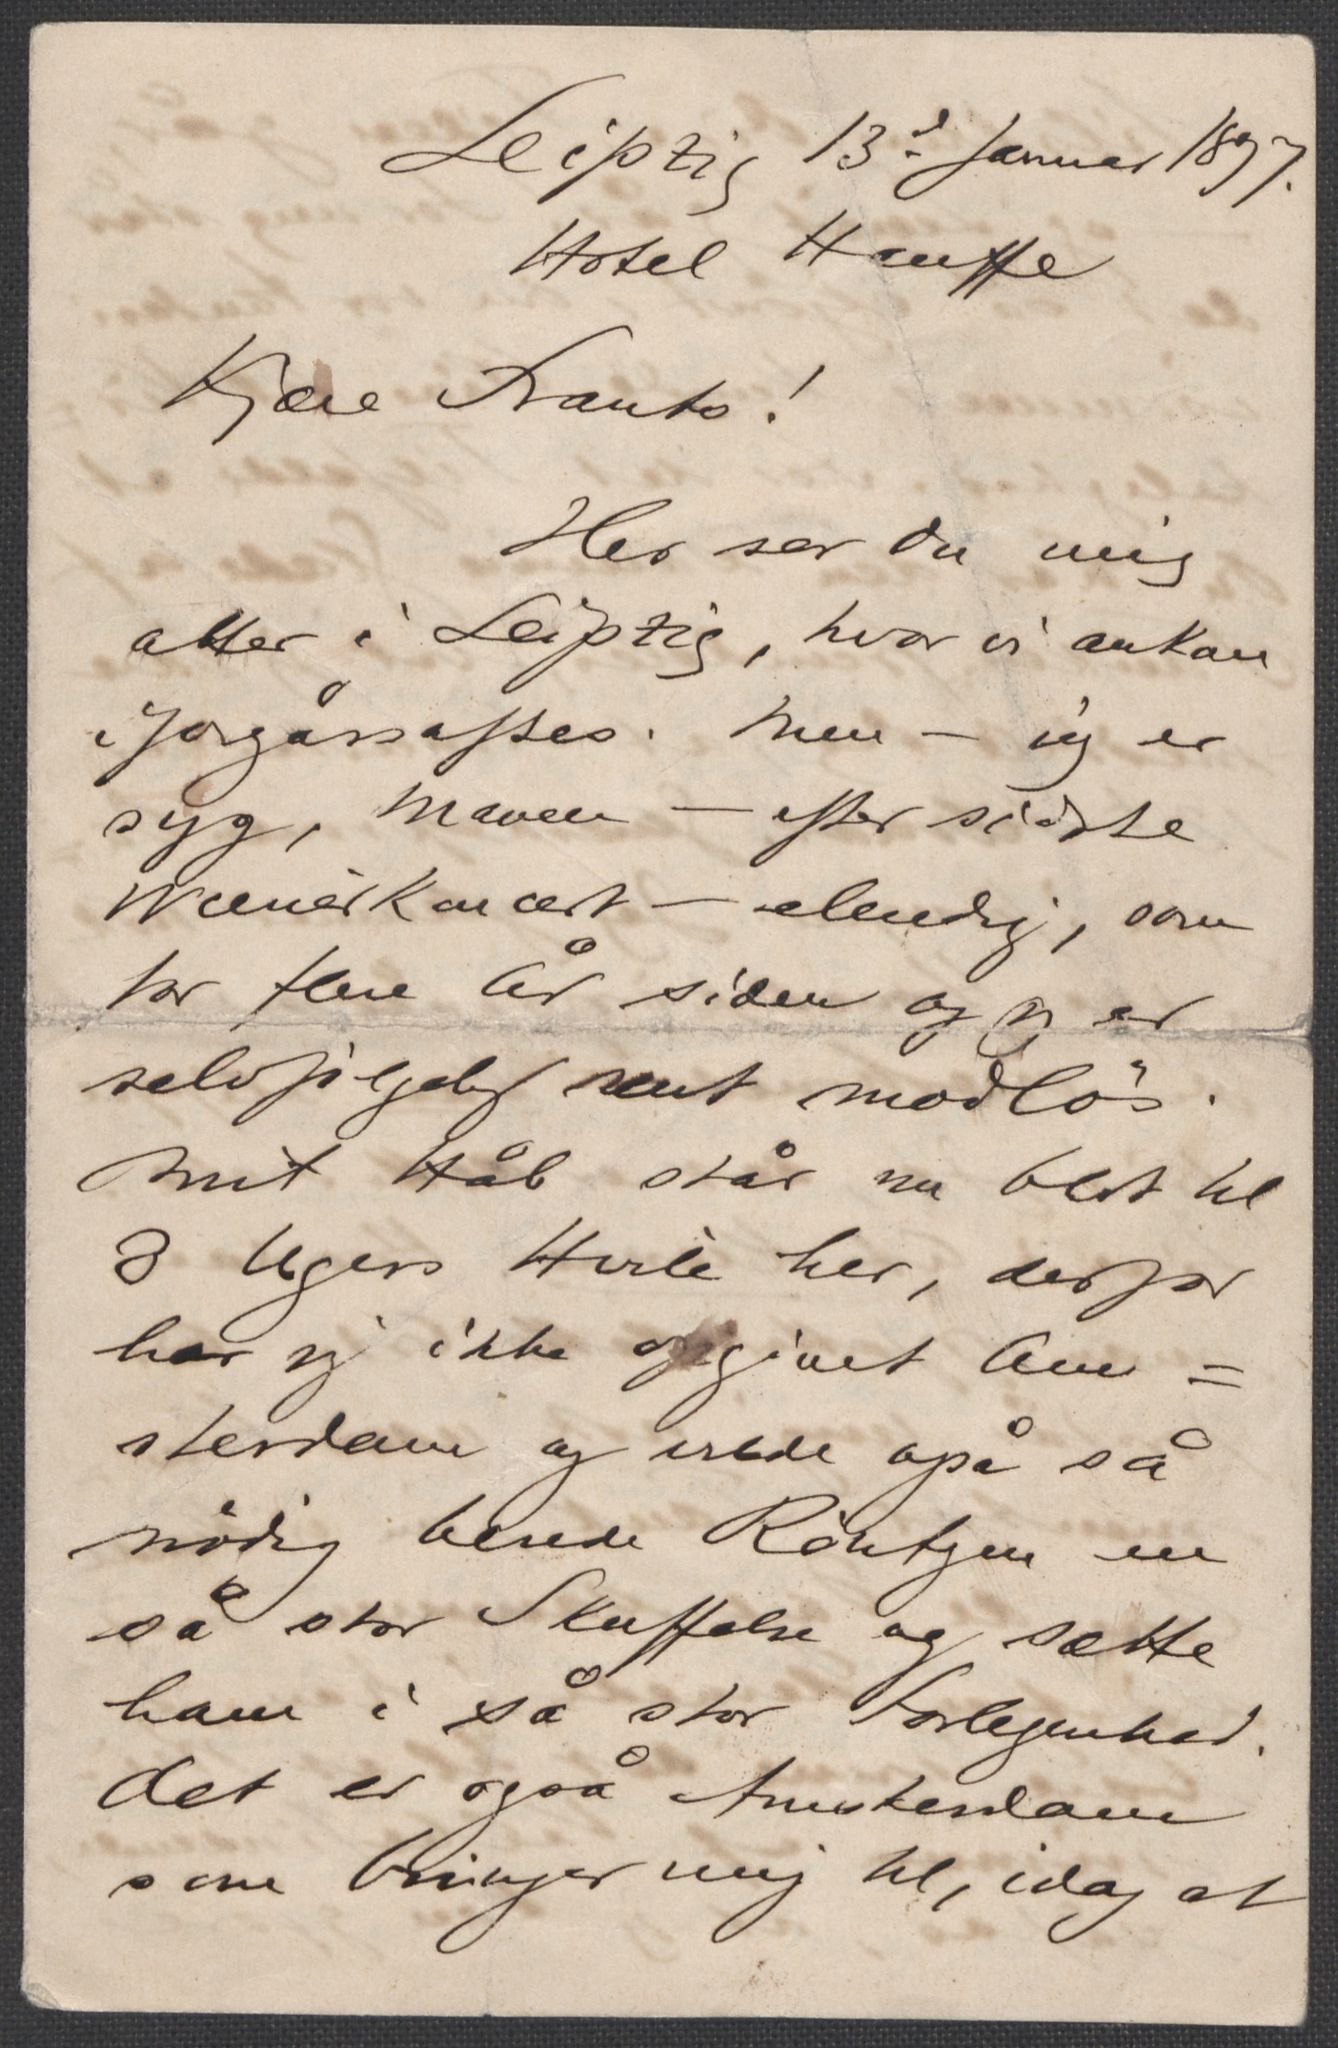 Leipzig 13d Januar 1897.
Hotel Hauffe
Kjære Frants!
Her ser du mig
atter i Leipzig, hvor vi ankom
iforgårsaftes. Men – jeg er
syg, Maven – efter sidste
Wienerkoncert – elendig, som
for flere År siden og jeg er
selvfølgelig rent modlös.
Mit Håb står nu blot til
3 Ugers Hvile her, derfor
har jeg ikke opgivet Am=
sterdam og vilde også så
nödig berede Röntgen en
så stor Skuffelse og sætte
ham i så stor Forlegenhed.
Det er også Amsterdam
som bringer mig til, idag at